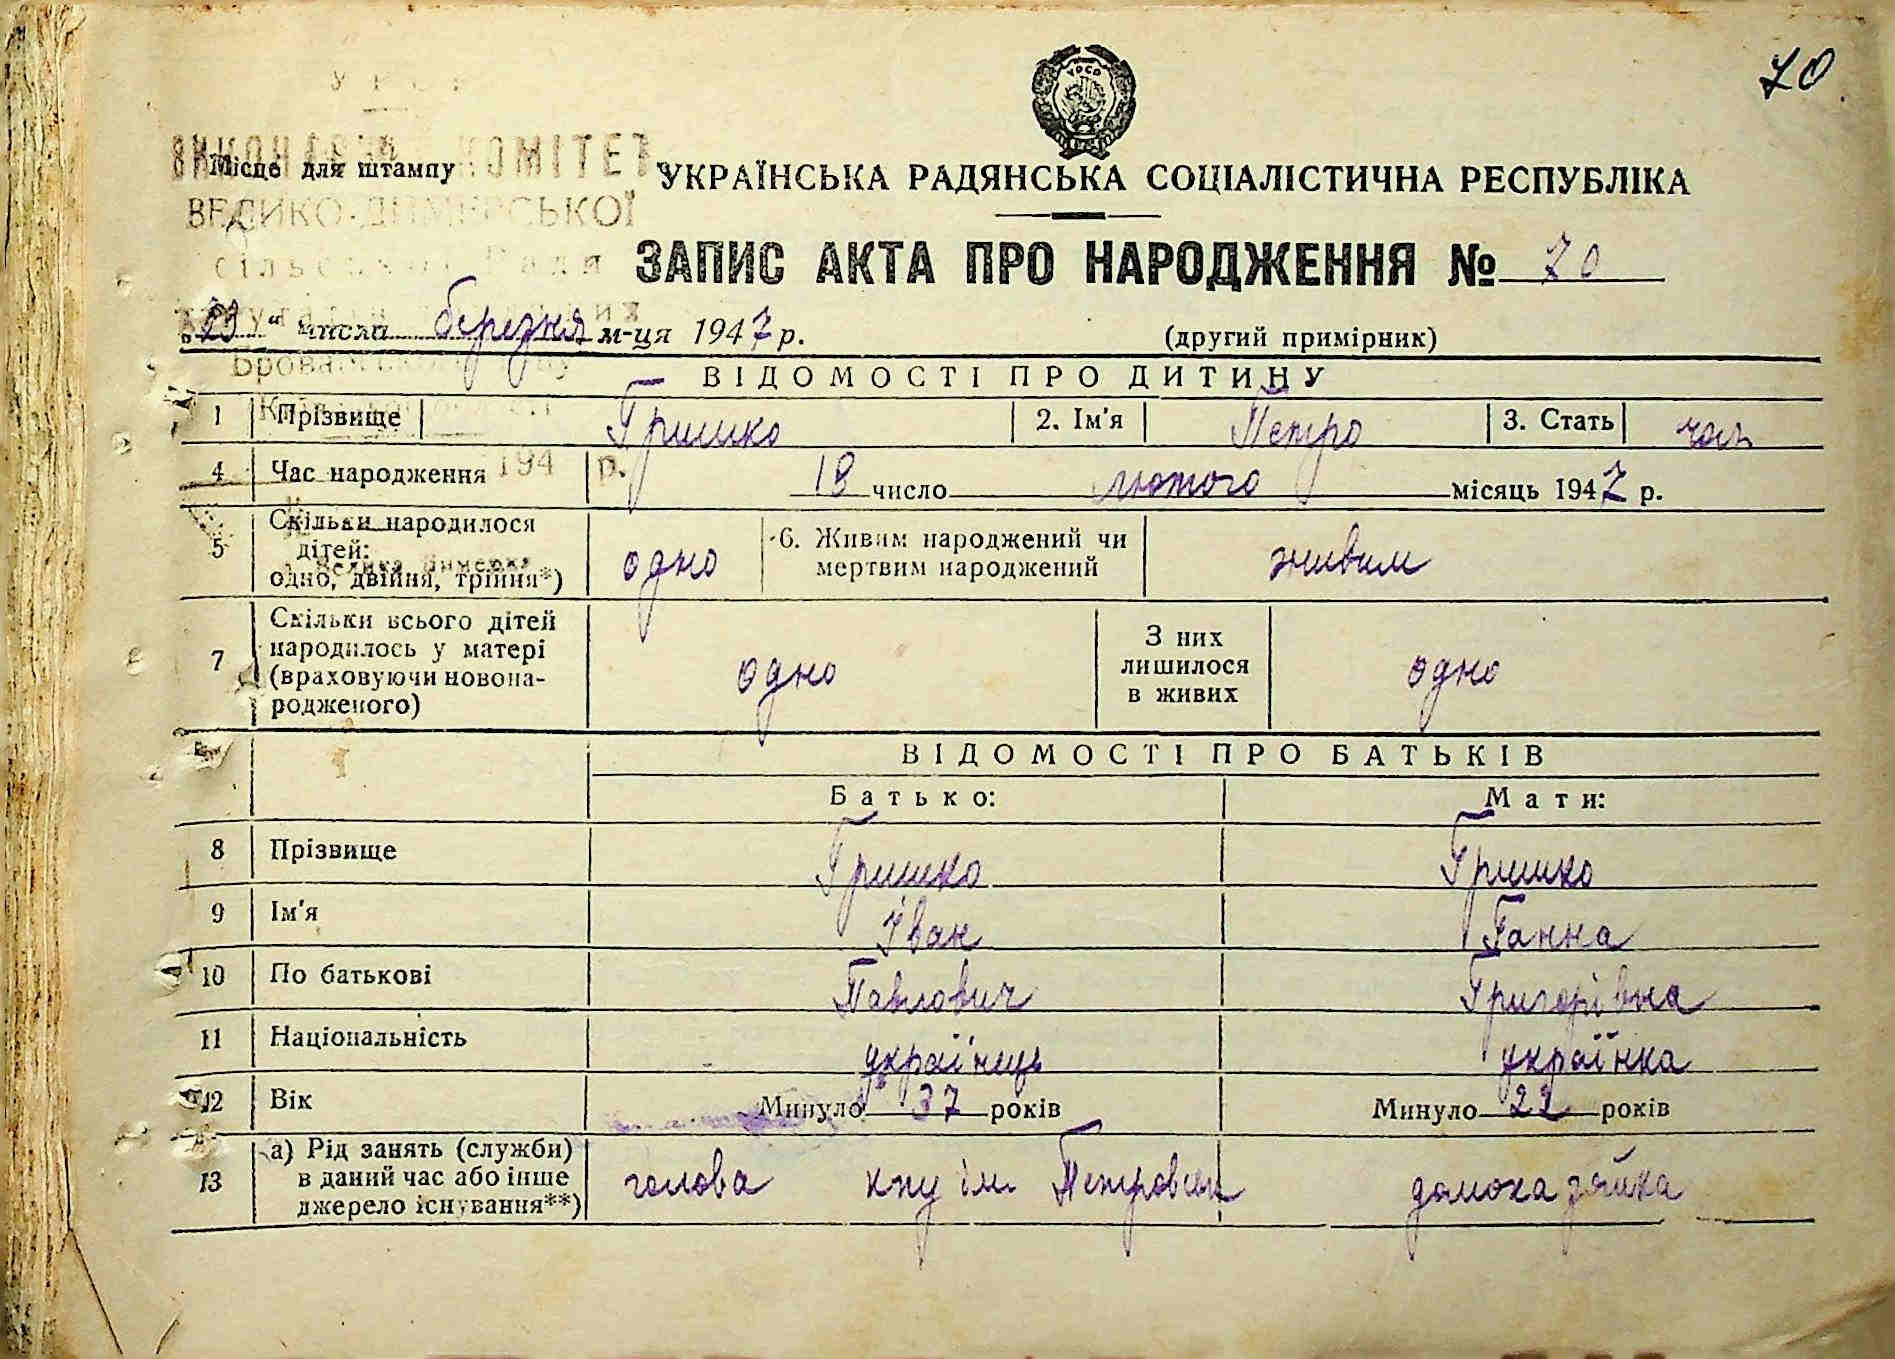 70
УРСР
ВИКОНАВЧИЙ КОМІТЕТ
Місце для штампу
УКРАЇНСЬКА РАДЯНСЬКА СОЦІАЛІСТИЧНА РЕСПУБЛІКА
ВЕЛИКО-ДИМЕРСЬКОЇ
сільської Ради
ЗАПИС АКТА ПРО НАРОДЖЕННЯ № 70
„23“ числа березня м-ця 1947 р.
(другий примірник)
ВІДОМОСТІ ПРО ДИТИНУ
1 Прізвище Гришко 2. Ім'я Петро 3. Стать чол.
194 р.
4 Час народження 18 число лютого місяць 1947 р.
5 Скільки народилося дітей: одно, двійня, трійня*) одно 6. Живим народжений чи мертвим народжений живим
Велика Димерка
7 Скільки всього дітей народилось у матері (враховуючи новонародженого) одно З них лишилося в живих одно
ВІДОМОСТІ ПРО БАТЬКІВ
Батько: Мати:
8 Прізвище Гришко Гришко
9 Ім'я Іван Ганна
10 По батькові Павлович Григорівна
11 Національність українець українка
12 Вік Минуло 37 років Минуло 22 років
13 а) Рід занять (служби) в даний час або інше джерело існування**) голова кпу ім. домохазяйка